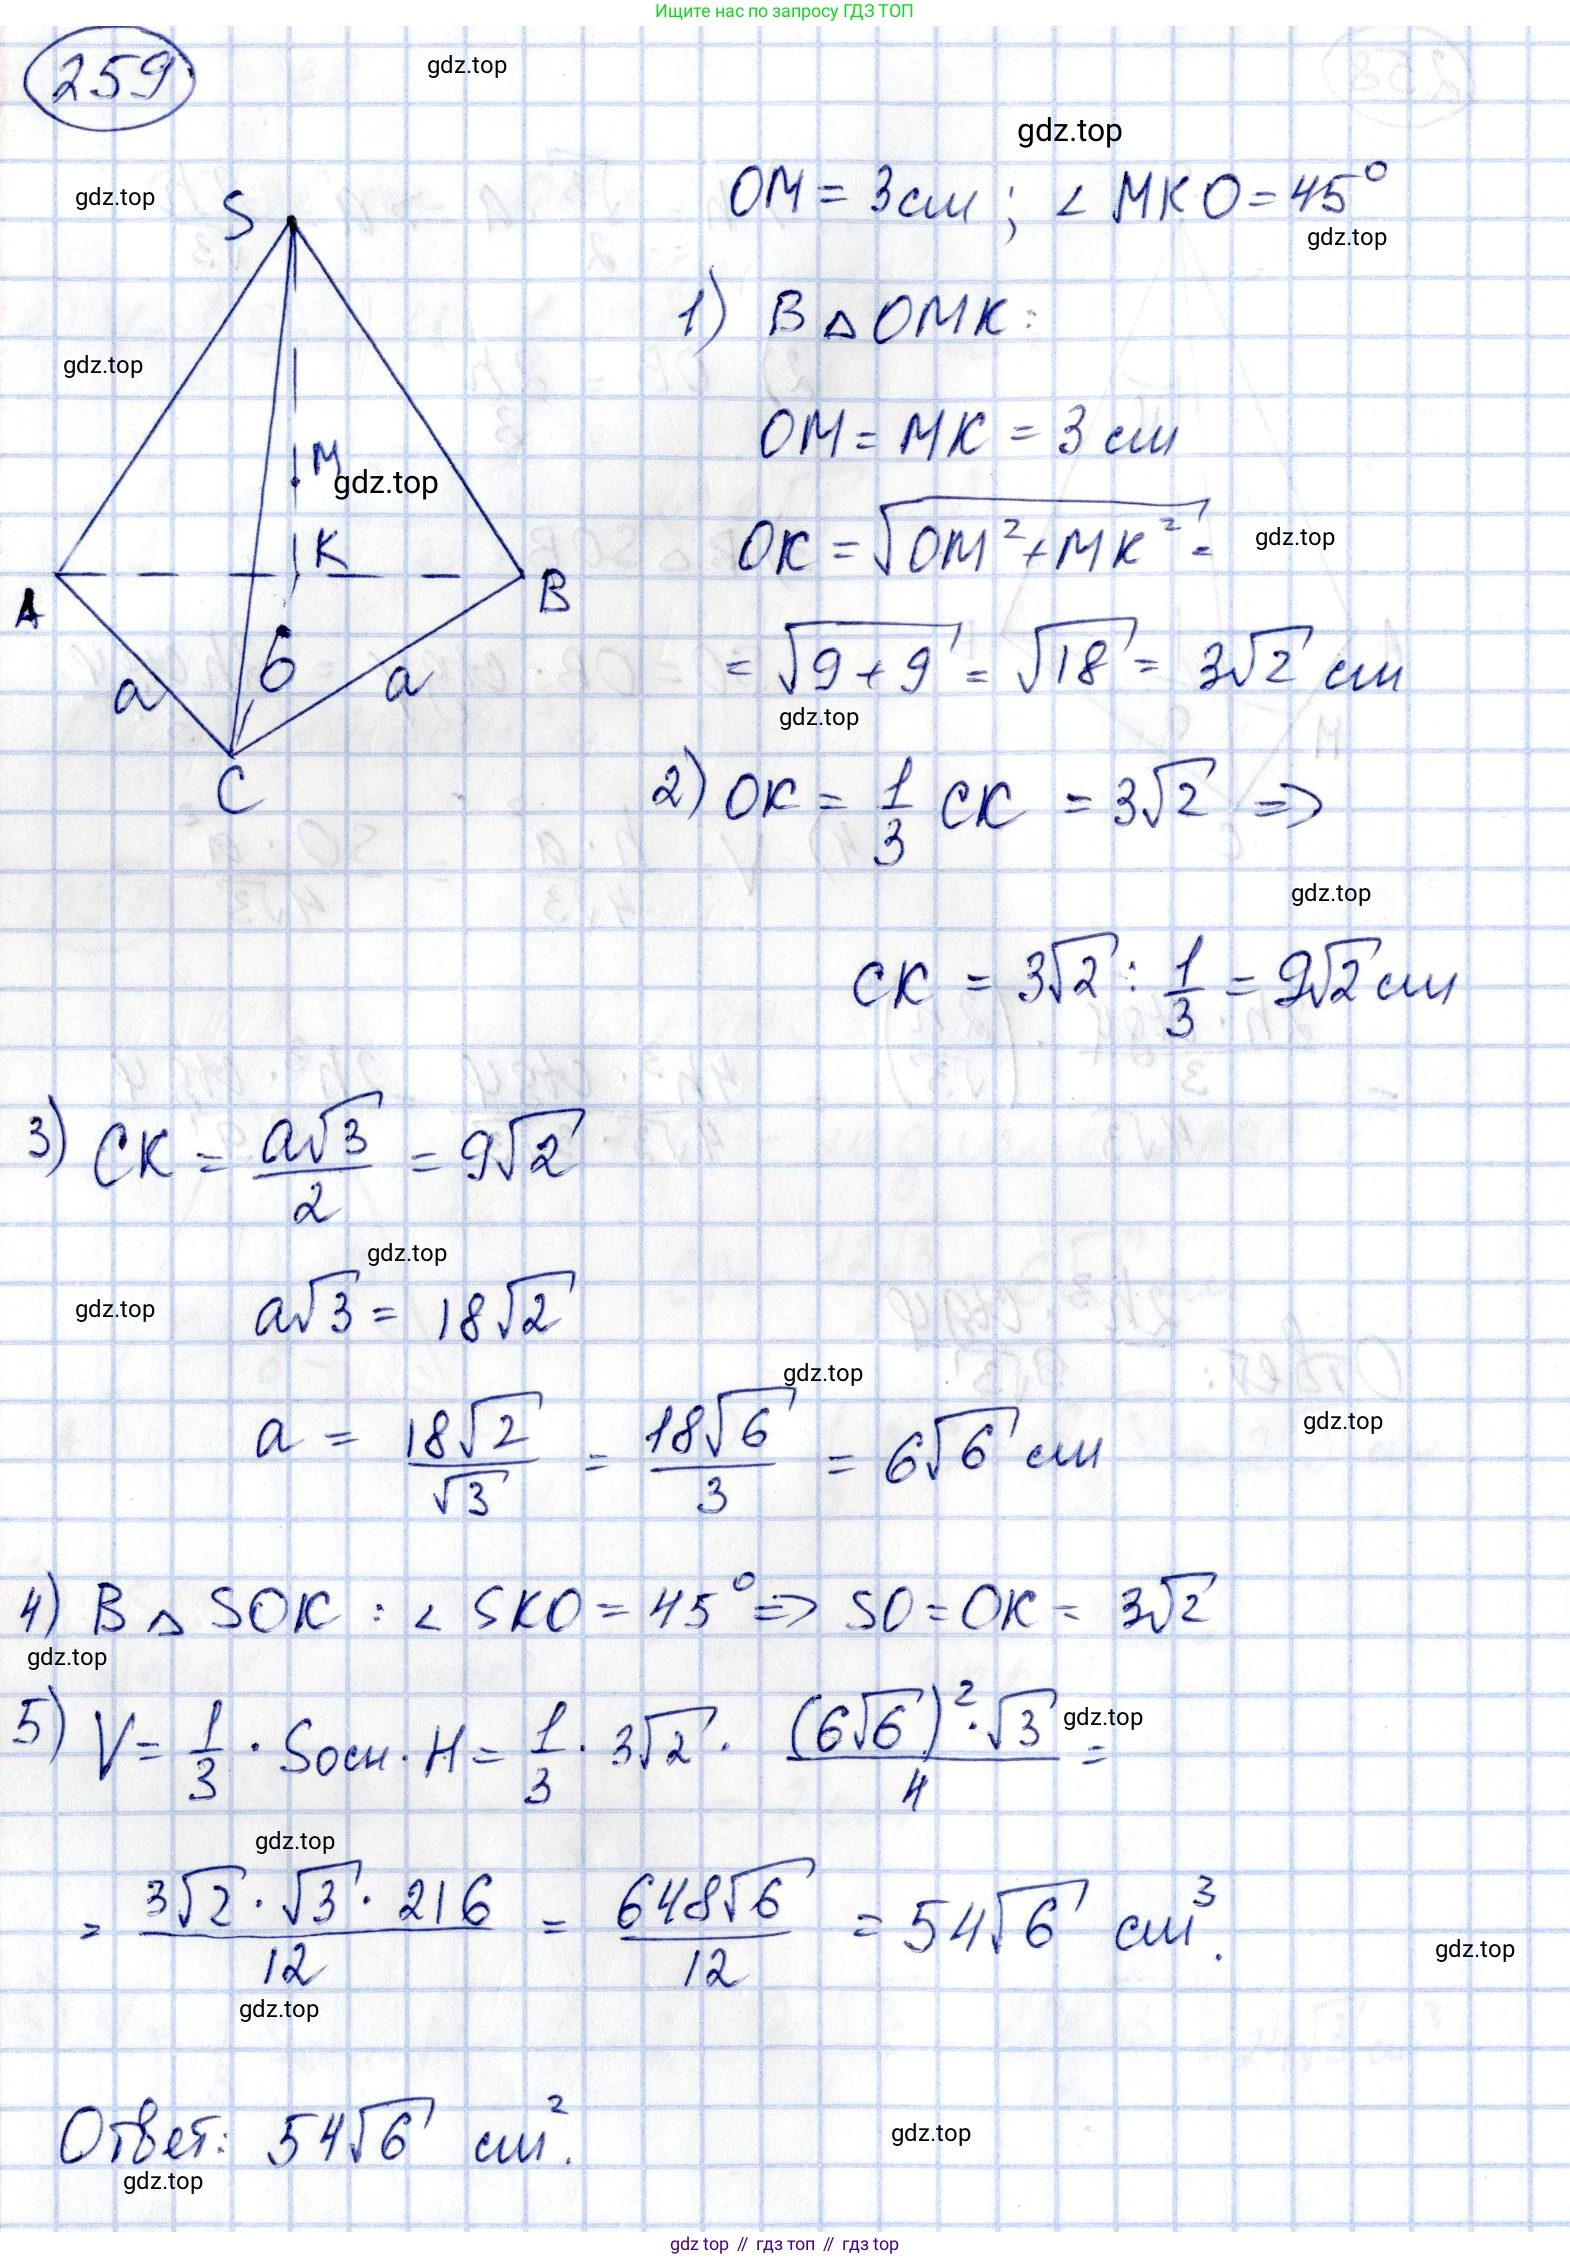 Ищите нас по запросу ГДЗ ТОП
259
gdz.top
gdz.top
gdz.top
OM = 3 см ; ∠ MKO = 45°
gdz.top
S
1) В △ OMK:
gdz.top
OM = MK = 3 см
M
gdz.top
OK = √(OM² + MK²) =
gdz.top
K
A
B
= √(9 + 9) = √18 = 3√2 см
O
a
a
gdz.top
C
2) OK = 1/3 CK = 3√2 =>
gdz.top
CK = 3√2 : 1/3 = 9√2 см
3) CK = a√3/2 = 9√2
gdz.top
gdz.top
a√3 = 18√2
gdz.top
gdz.top
a = 18√2/√3 = 18√6/3 = 6√6 см
4) В △ SOK : ∠ SKO = 45° => SO = OK = 3√2
gdz.top
5) V = 1/3 · Sосн · H = 1/3 · 3√2 · (6√6)² · √3/4 =
gdz.top
gdz.top
= 3√2 · √3 · 216/12 = 648√6/12 = 54√6 см³.
gdz.top
gdz.top
Ответ: 54√6 см².
gdz.top
gdz.top
gdz top // гдз топ // гдз top